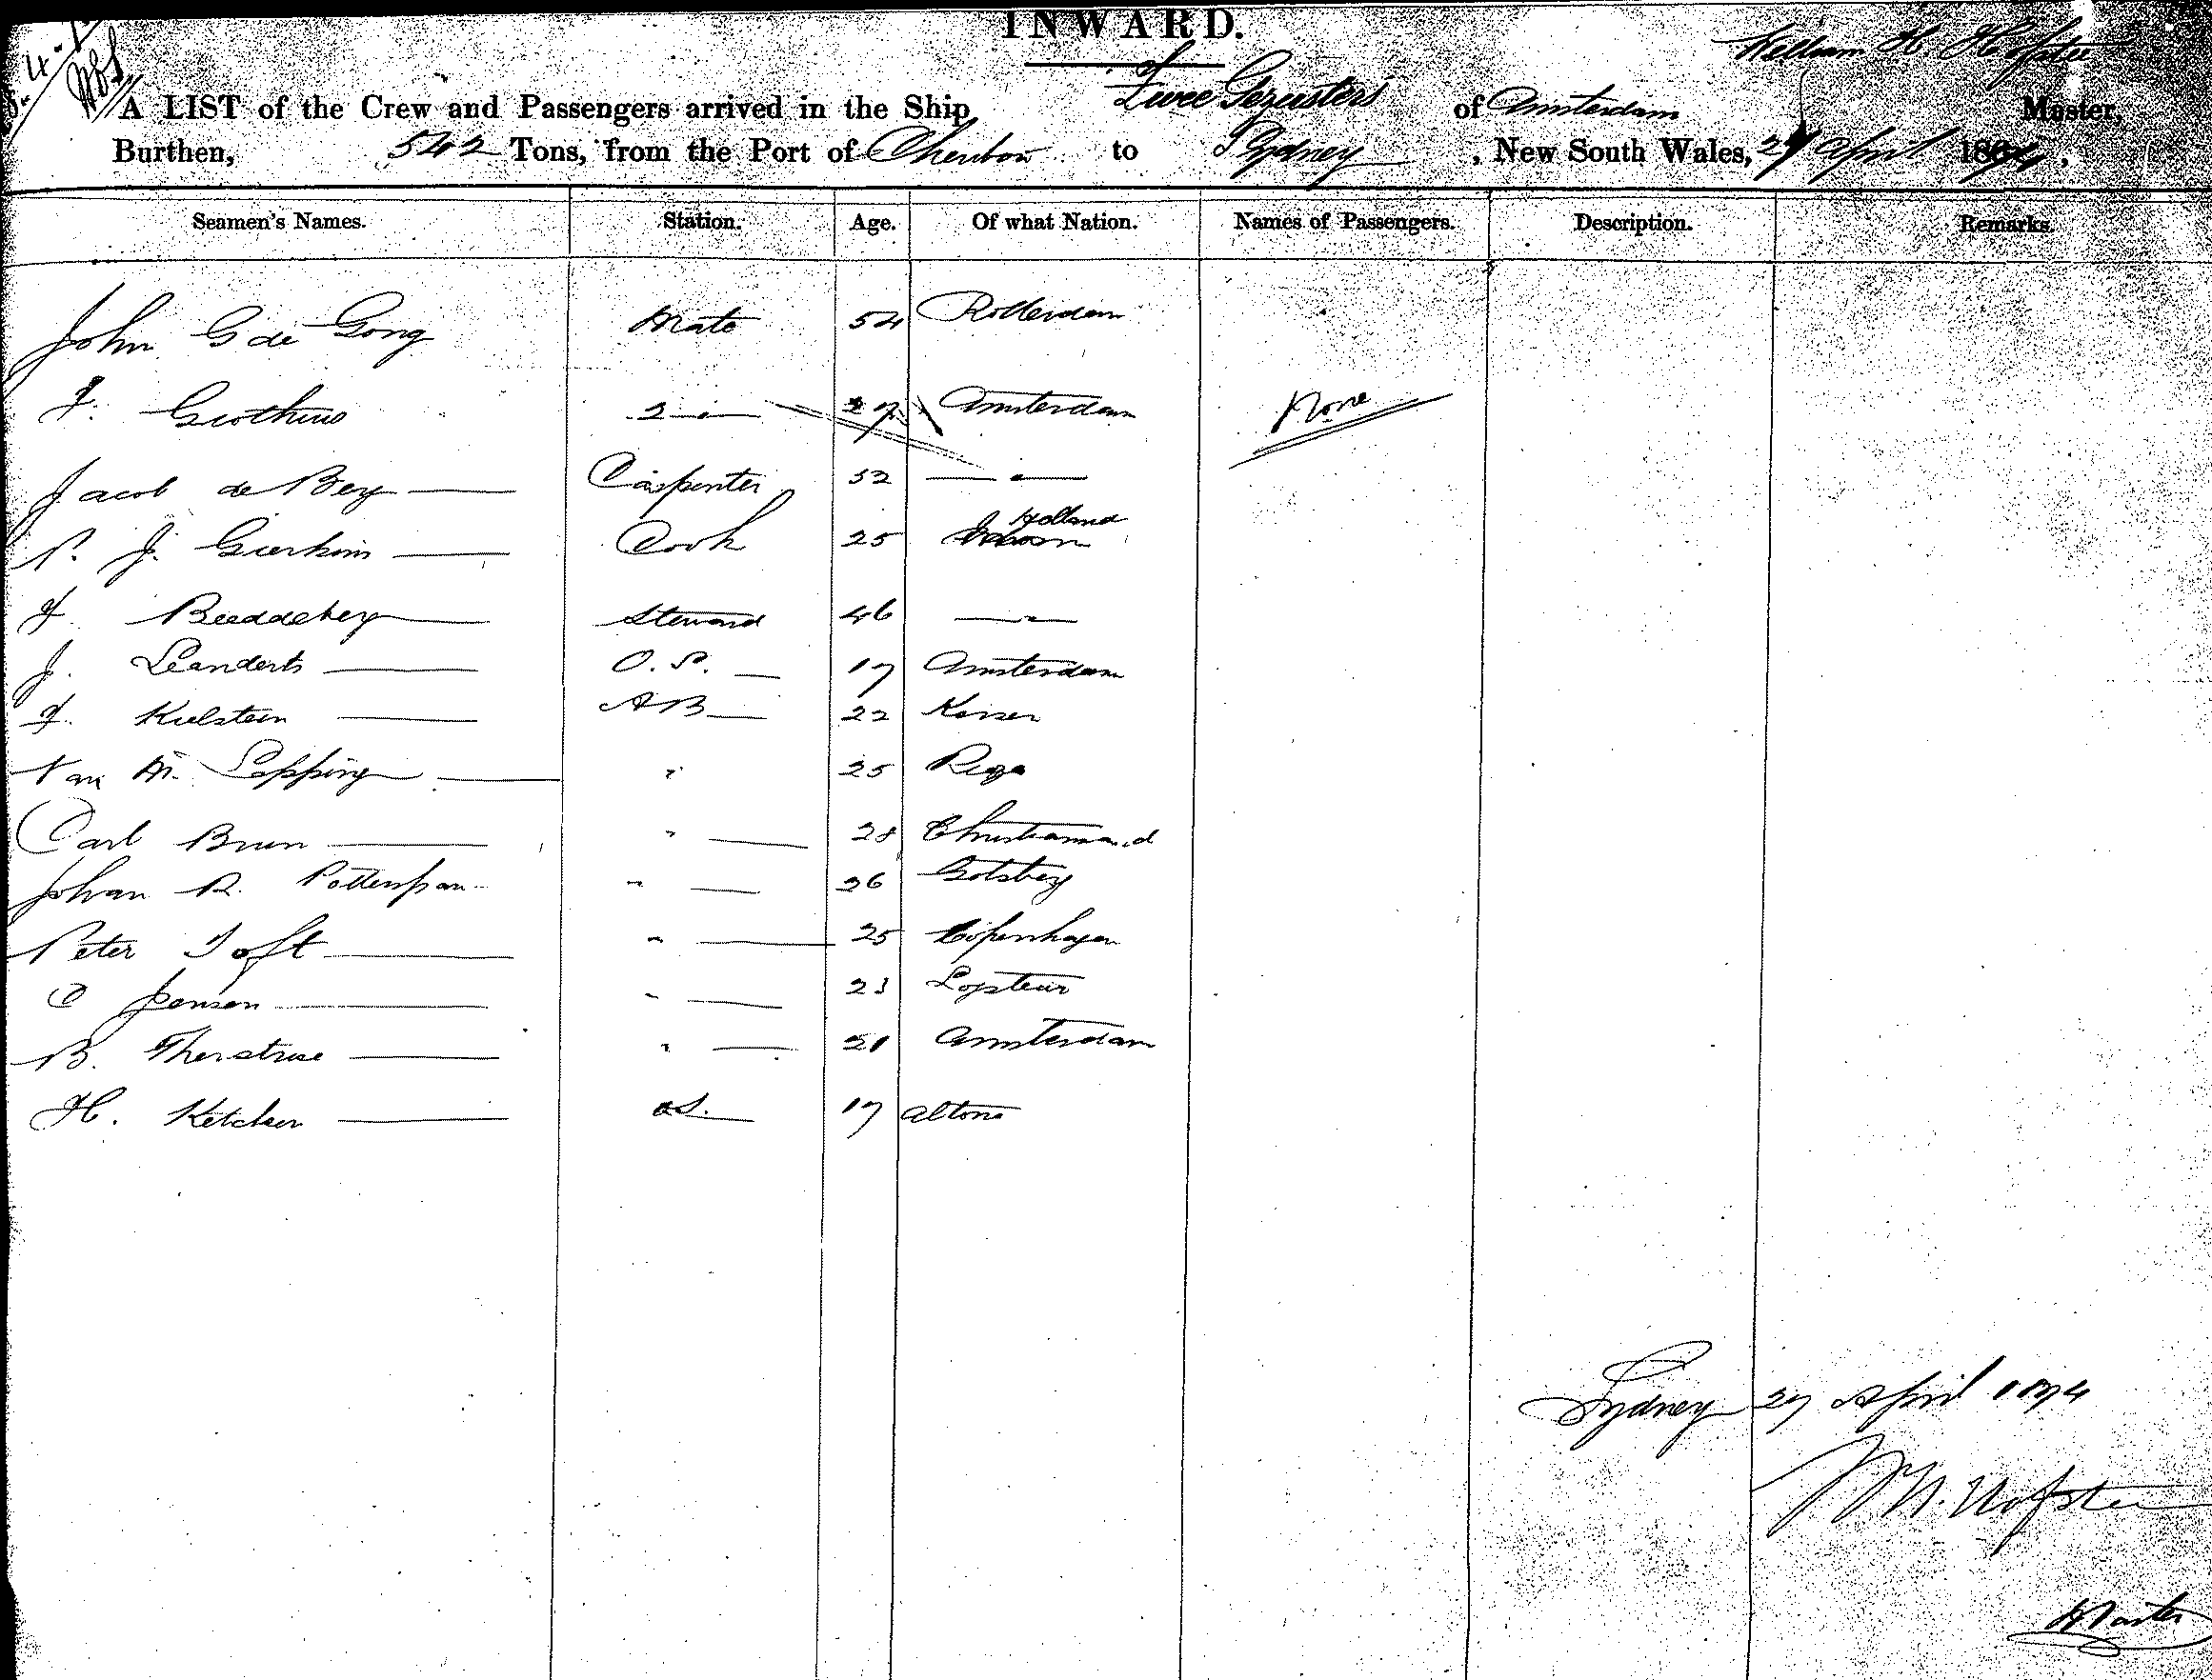 INWARD.
William H Hofstee
A LIST of the Crew and Passengers arrived in the Ship Twee Gezusters of Amsterdam Master,
Burthen, 542 Tons, from the Port of Cheribon to Sydney, New South Wales, 27 April 1874,
Seamen's Names. Station. Age. Of what Nation. Names of Passengers. Description. Remarks.
John G de Gong Mate 54 Rotterdam
2 27 Amsterdam None
Jacob de Bey Carpenter 52 — " —
P. J. Cook 25 Holland
Steward 46 — " —
J. Leanderts O.S. 17 Amsterdam
Kulsteen AB 22
Van M. Lopping " 25 Riga
Carl Brun " 28 Christiansand
Johan R. Pottenpan " 26 Gotsberg
Peter Toft " 25 Copenhagen
O Jensen " 23
B. Amsterdam
H. Ketcher OS. 17 Altona
Sydney 27 April 1874
W H. Hofstee
Master